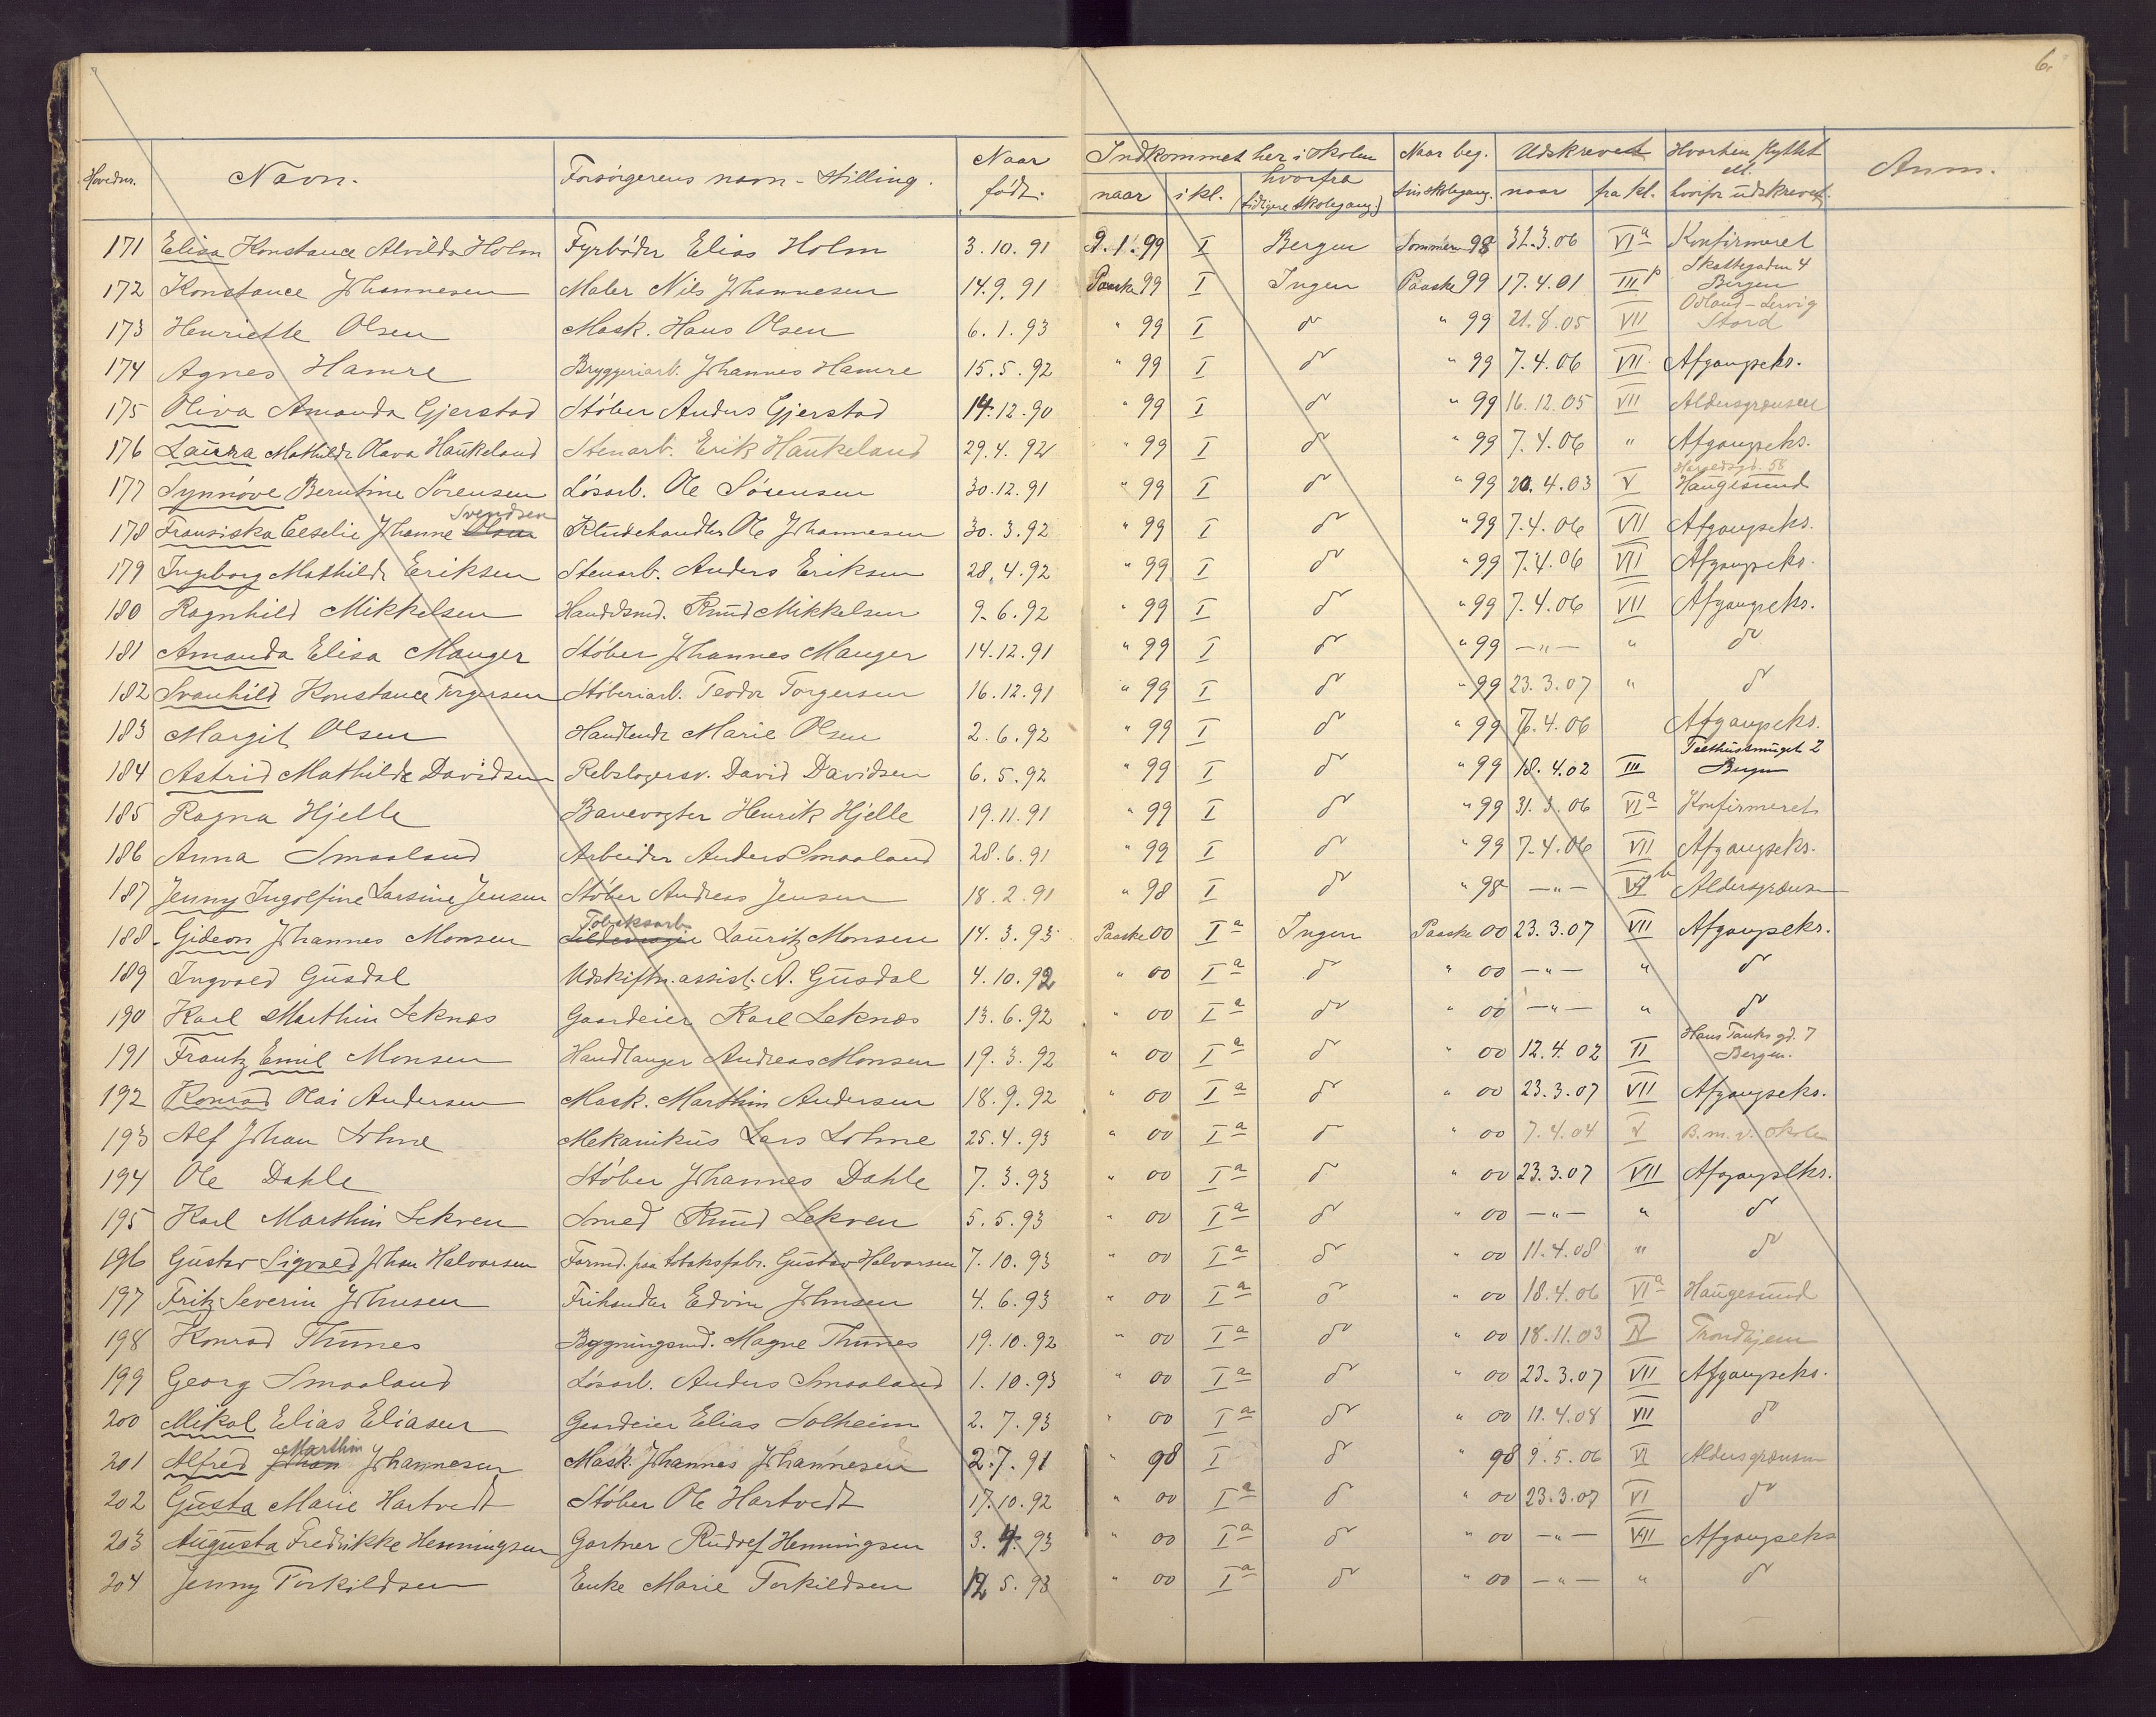 6.
Hovednr. Navn. Forsørgerens navn - Stilling. Naar født. Indkommet her i skolen naar i kl. hvorfra (tidligere skolegang) Naar beg. sin skolegang. Udskrevet naar fra kl. Hvorhen flyttet el. hvorfor udskrevet. Anm.
171 Elisa Konstance Alvilda Holm Fyrbøder Elias Holm 3.10.91 9.1.99 I Bergen Sommeren 98 31.3.06 VIa Konfirmeret
172 Konstance Johannesen Maler Nils Johannesen 14.9.91 Paaske 99 I Ingen Paaske 99 17.4.01 III Skottegaden 4 Bergen
173 Henriette Olsen Mask. Hans Olsen 6.1.93 " 99 I do " 99 21.8.05 VII Odland - Lervig Stord
174 Agnes Hamre Bryggeriarb. Johannes Hamre 15.5.92 " 99 I do " 99 7.4.06 VII Afgangseks.
175 Oliva Amanda Gjerstad Støber Anders Gjerstad 14.12.90 " 99 I do " 99 16.12.05 VII Aldersgrænsen
176 Laura Mathilde Olava Haukeland Stenarb. Erik Haukeland 29.4.92 " 99 I do " 99 7.4.06 " Afgangseks.
177 Synnøve Berntine Sørensen Løsarb. Ole Sørensen 30.12.91 " 99 I do " 99 20.4.03 V Haugesund
178 Fransiska Ceselie Johanne Olsen Svendsen Kludehandler Ole Johannesen 30.3.92 " 99 I do " 99 7.4.06 VII Afgangseks.
179 Ingeborg Mathilde Eriksen Stenarb. Anders Eriksen 28.4.92 " 99 I do " 99 7.4.06 VII Afgangseks.
180 Ragnhild Mikkelsen Handelsmd. Knud Mikkelsen 9.6.92 " 99 I do " 99 7.4.06 VII Afgangseks.
181 Amanda Elisa Manger Støber Johannes Manger 14.12.91 " 99 I do " 99 — " — " do
182 Svanhild Konstance Torgersen Støberiarb. Teodor Torgersen 16.12.91 " 99 I do " 99 23.3.07 " do
183 Margit Olsen Handlende Marie Olsen 2.6.92 " 99 I do " 99 7.4.06 Afgangseks.
184 Astrid Mathilde Davidsen Rebslagersv. David Davidsen 6.5.92 " 99 I do " 99 18.4.02 III Bergen
185 Ragna Hjelle Banevogter Henrik Hjelle 19.11.91 " 99 I do " 99 31.3.06 VIa Konfirmeret
186 Anna Smaaland Arbeider Anders Smaaland 28.6.91 " 99 I do " 99 7.4.06 VII Afgangseks.
187 Jenny Ingolfine Larsine Jensen Støber Andreas Jensen 18.2.91 " 98 I do " 98 — " — Aldersgrænsen
188 Gideon Johannes Monsen Tobaksarb. Lauritz Monsen 14.3.93 Paaske 00 Ia Ingen Paaske 00 23.3.07 VII Afgangseks.
189 Ingvald Gusdal Udskiftn. assist. A. Gusdal 4.10.92 " 00 Ia do " 00 — " — " do
190 Karl Marthin Leknes Gaardeier Karl Leknes 13.6.92 " 00 Ia do " 00 — " — " do
191 Frantz Emil Monsen Handlanger Andreas Monsen 19.3.92 " 00 Ia do " 00 12.4.02 II Hans Tanks gd. 7 Bergen.
192 Konrad Olai Andersen Mask. Marthin Andersen 18.9.92 " 00 Ia do " 00 23.3.07 VII Afgangseks.
193 Alf Johan Lohne Mekanikus Lars Lohne 25.4.93 " 00 Ia do " 00 7.4.04 V B.m.v. skole
194 Ole Dahle Støber Johannes Dahle 7.3.93 " 00 Ia do " 00 23.3.07 VII Afgangseks.
195 Karl Marthin Lekven Smed Knud Lekven 5.5.93 " 00 Ia do " 00 — " — " do
196 Gustav Sigvald Johan Halvorsen Formd. paa tobaksfabr. Gustav Halvorsen 7.10.93 " 00 Ia do " 00 11.4.08 " do
197 Fritz Severin Johnsen Frihandler Edvin Johnsen 4.6.93 " 00 Ia do " 00 18.4.06 VIa Haugesund
198 Konrad Thunes Bygningsmd. Magne Thunes 19.10.92 " 00 Ia do " 00 18.11.03 IV Trondhjem
199 Georg Smaaland Løsarb. Anders Smaaland 1.10.93 " 00 Ia do " 00 23.3.07 VII Afgangseks.
200 Mikal Elias Eliasen Gaardeier Elias Solheim 2.7.93 " 00 Ia do " 00 11.4.08 VII do
201 Alfred Johan Marthin Johannesen Mask. Johannes Johannesen 2.7.91 " 98 I do " 98 9.5.06 VI Aldersgrænsen
202 Gusta Marie Hartvedt Støber Ole Hartvedt 17.10.92 " 00 Ia do " 00 23.3.07 VI do
203 Augusta Fredrikke Henningsen Gartner Rudolf Henningsen 3.4.93 " 00 Ia do " 00 — " — VII Afgangseks
204 Jenny Torkildsen Enke Marie Torkildsen 12.5.93 " 00 Ia do " 00 — " — " do